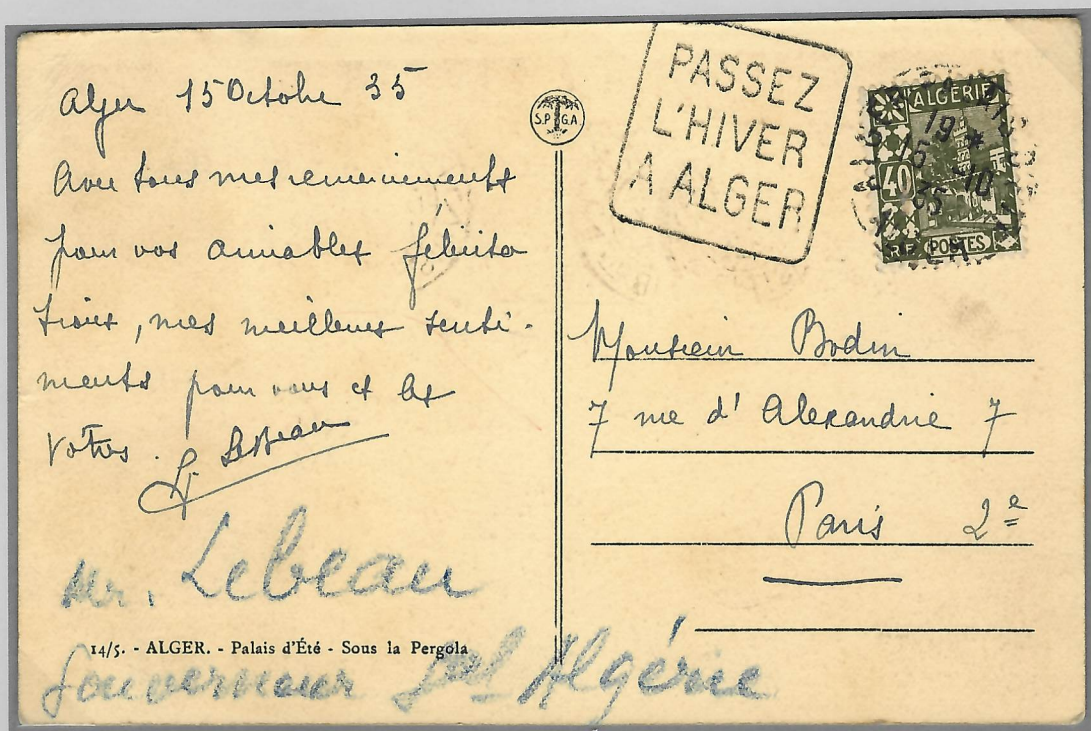 Alger 15 Octobre 35
Avec tous mes remerciements
pour vos aimables félicita
tions, mes meilleurs senti-
ments pour vous et les
Vôtres.
Lebeau
Mr. Lebeau
14/5. - ALGER. - Palais d'Été - Sous la Pergola
Gouverneur Gal Algérie
S.P.G.A.
PASSEZ
L'HIVER
A ALGER
ALGÉRIE
19 *
15 -10
35
40
RF POSTES
Monsieur Bodin
7 rue d'Alexandrie 7
Paris 2e